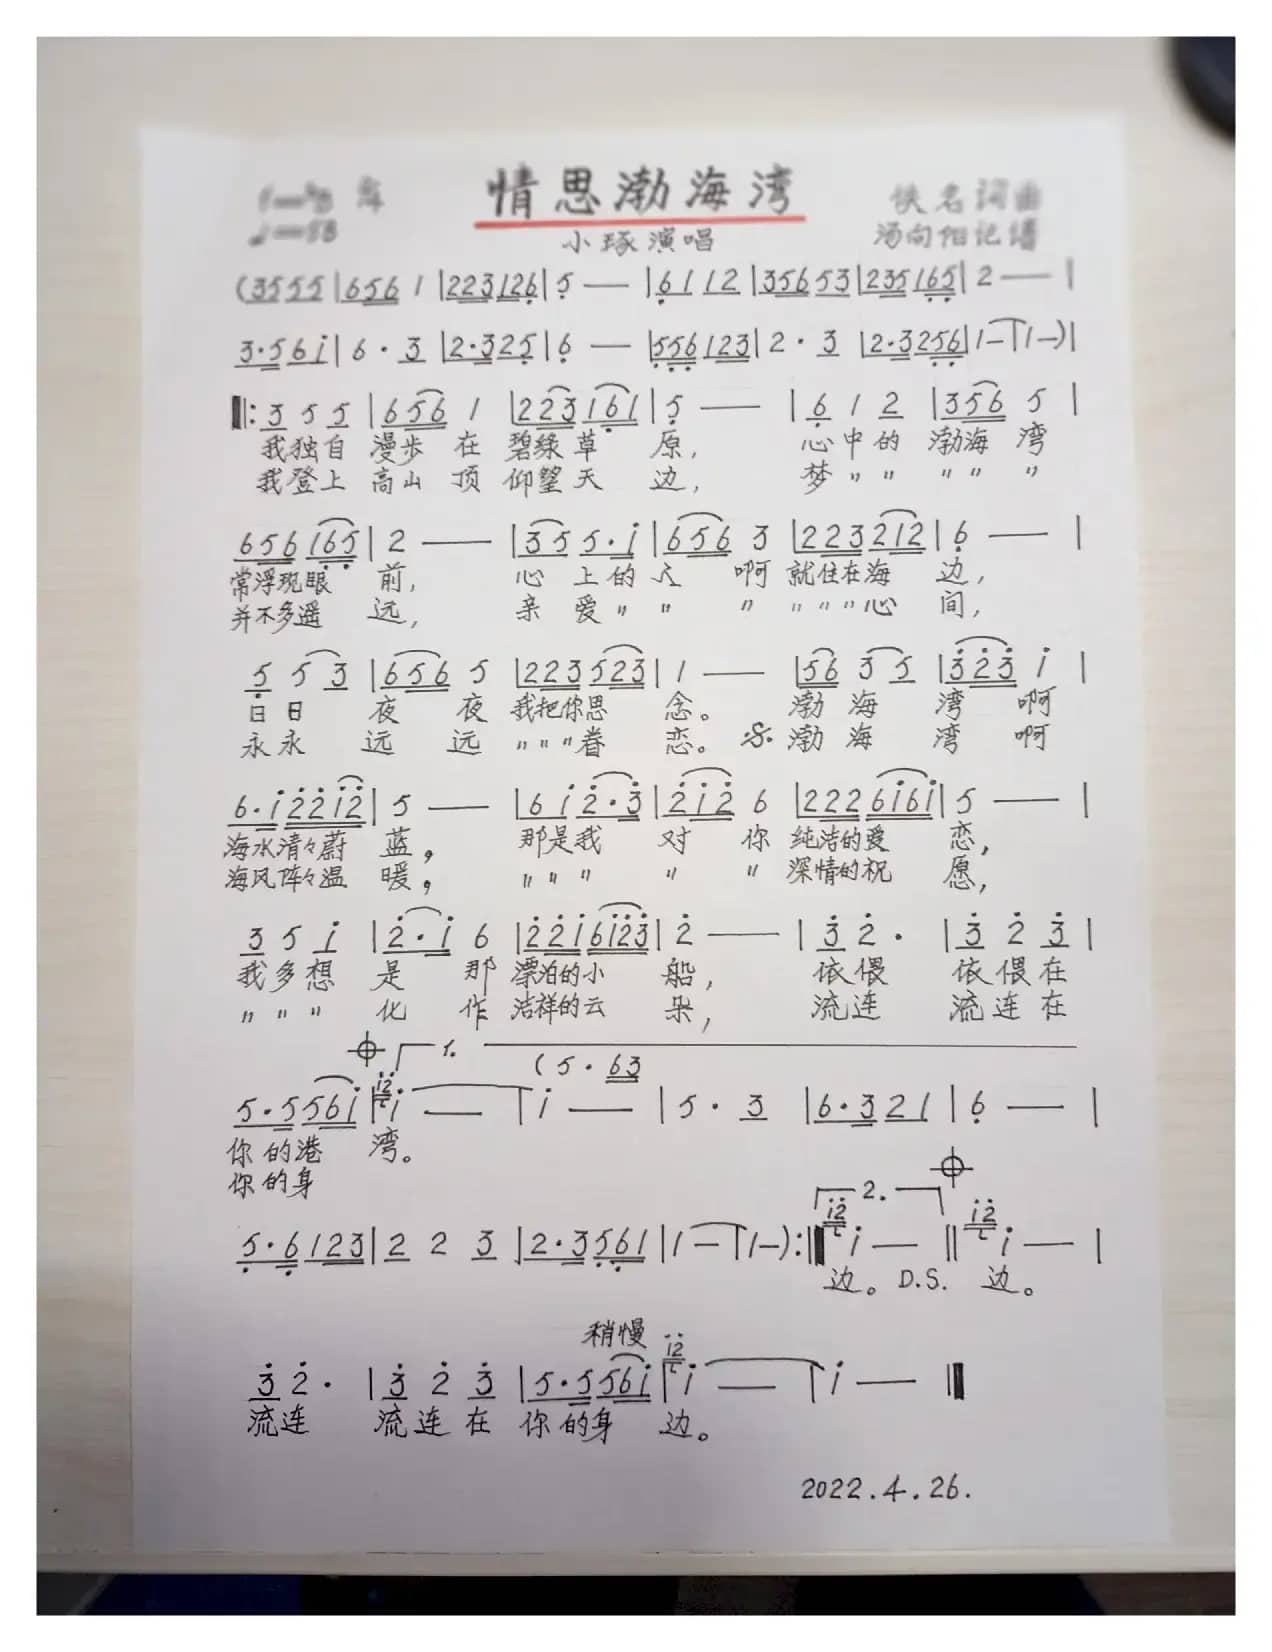 情思渤海湾
佚名词曲
小琢演唱
汤向阳记谱
(3555|656 1|223126|5 —|6 1 12|35653|235165|2 —|
3·56i|6·3|2·325|6 —|556123|2·3|2·3256|1—|1—)|
‖:3 5 5|656 1|223161|5 —|6 1 2|356 5|
我独自 漫步 在 碧绿草 原, 心中的 渤海 湾
我登上 高山 顶 仰望天 边, 梦〃〃 〃〃 〃
656165|2 —|35 5·i|656 3|223212|6 —|
常浮现眼 前, 心 上的 人 啊 就住在海 边,
并不多遥 远, 亲 爱〃 〃 〃 〃〃〃心 间,
5 5 3|656 5|223523|1 —|56 3 5|323 i|
日日 夜 夜 我把你思 念。 渤 海 湾 啊
永永 远 远 〃〃〃眷 恋。 𝄋 渤 海 湾 啊
6·i22i2|5 —|6 i 2·3|2i2 6|2226i6i|5 —|
海水清々蔚 蓝, 那是我 对 你 纯洁的爱 恋,
海风阵々温 暖, 〃〃〃 〃 〃 深情的祝 愿,
3 5 i|2·i 6|22i6i23|2 —|3 2·|3 2 3|
我多想 是 那 漂泊的小 船, 依偎 依偎在
〃〃〃 化 作 洁祥的云 朵, 流连 流连在
1. (5·63
5·556i|i2 i —|i —|5·3|6·321|6 —|
你的港 湾。
你的身
2.
5·6123|2 2 3|2·3561|1—|1—):‖i2 i —‖i2 i —|
边。 D.S. 边。
稍慢
3 2·|3 2 3|5·556i|i2 i —|i —‖
流连 流连在 你的身 边。
2022.4.26.